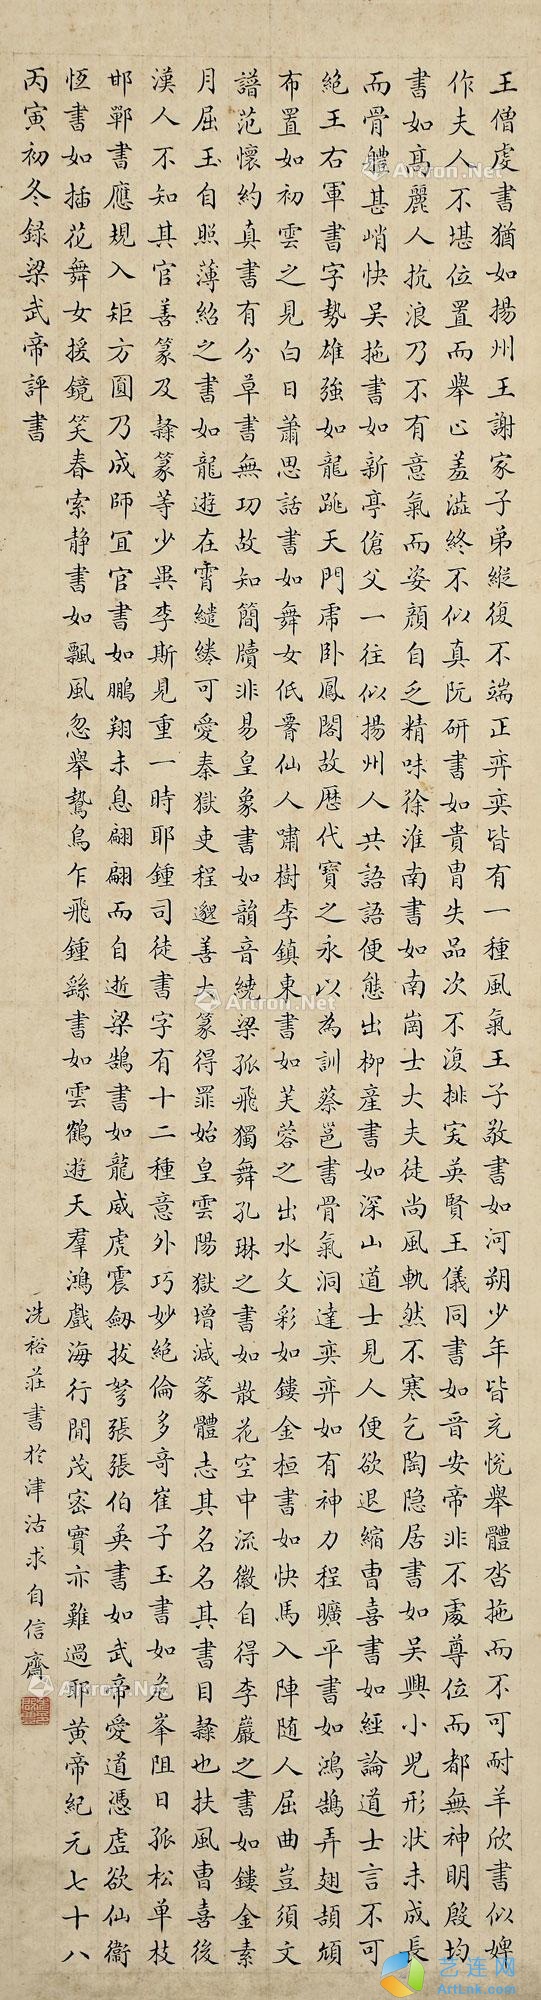 王僧虔書猶如揚州王謝家子弟縱復不端正弈奕皆有一種風氣王子敬書如河朔少年皆充悅舉體沓拖而不可耐羊欣書似婢
作夫人不堪位置而舉止羞澁終不似真阮研書如貴胄失品次不復排突英賢王儀同書如晉安帝非不處尊位而都無神明殷均
書如高麗人抗浪乃不有意氣而姿顏自乏精味徐淮南書如南崗士大夫徒尚風軌然不寒乞陶隐居書如吳興小兒形狀未成長
而骨體甚峭快吴拖書如新亭傖父一往似揚州人共語語便態出柳産書如深山道士見人便欲退縮曹喜書如經論道士言不可
絶王右軍書字勢雄強如龍跳天門虎卧鳳閣故歷代寶之永以為訓蔡邕書骨氣洞達奕弈如有神力程曠平書如鴻鵠弄翅頡頏
布置如初雲之見白日蕭思話書如舞女低腰仙人嘯樹李鎮東書如芙蓉之出水文彩如鏤金桓書如快馬入陣随人屈曲豈須文
譜范懷約真書有分草書無功故知簡牘非易皇象書如韻音繞梁孤飛獨舞孔琳之書如散花空中流徽自得李巖之書如鏤金素
月屈玉自照薄紹之書如龍遊在霄繾綣可愛秦獄吏程邈善大篆得罪始皇雲陽獄增減篆體志其名名其書目隸也扶風曹喜後
漢人不知其官善篆及隸篆等少異李斯見重一時耶鍾司徒書字有十二種意外巧妙絶倫多竒崔子玉書如危峯阻日孤松单枝
邯鄲書應規入矩方圓乃成師宜官書如鵬翔未息翩翩而自逝梁鵠書如龍威虎震劒拔弩張張伯英書如武帝愛道憑虛欲仙衞
恆書如插花舞女援鏡笑春索静書如飄風忽舉鷙鳥乍飛鍾繇書如雲鶴遊天羣鴻戲海行間茂密實亦難過耶黄帝紀元七十八
丙寅初冬録梁武帝評書
冼裕莊書於津沽求自信齋
Artron.Net
Artron.Net
Artron.Net
Artron.Net
Artron.Net
Artron.Net
艺连网
ArtLnk.com